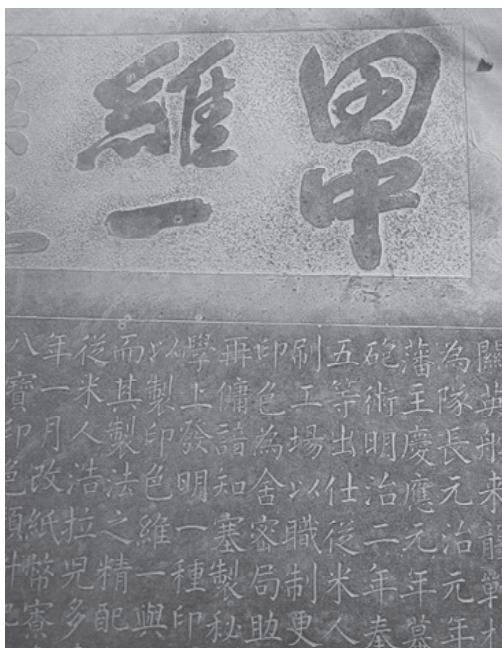 田中
維一
關英船来
為隊長元治元年
藩主慶應元年
砲術明治二年奉
五等出仕從米人
刷工場以職制更
印色為舍密局助
再傭諳知塞製秘
學上發明一種印
以製印色維一與
而其製法之精配
從米人浩拉兒多
年一月改紙幣寮
八寶印色